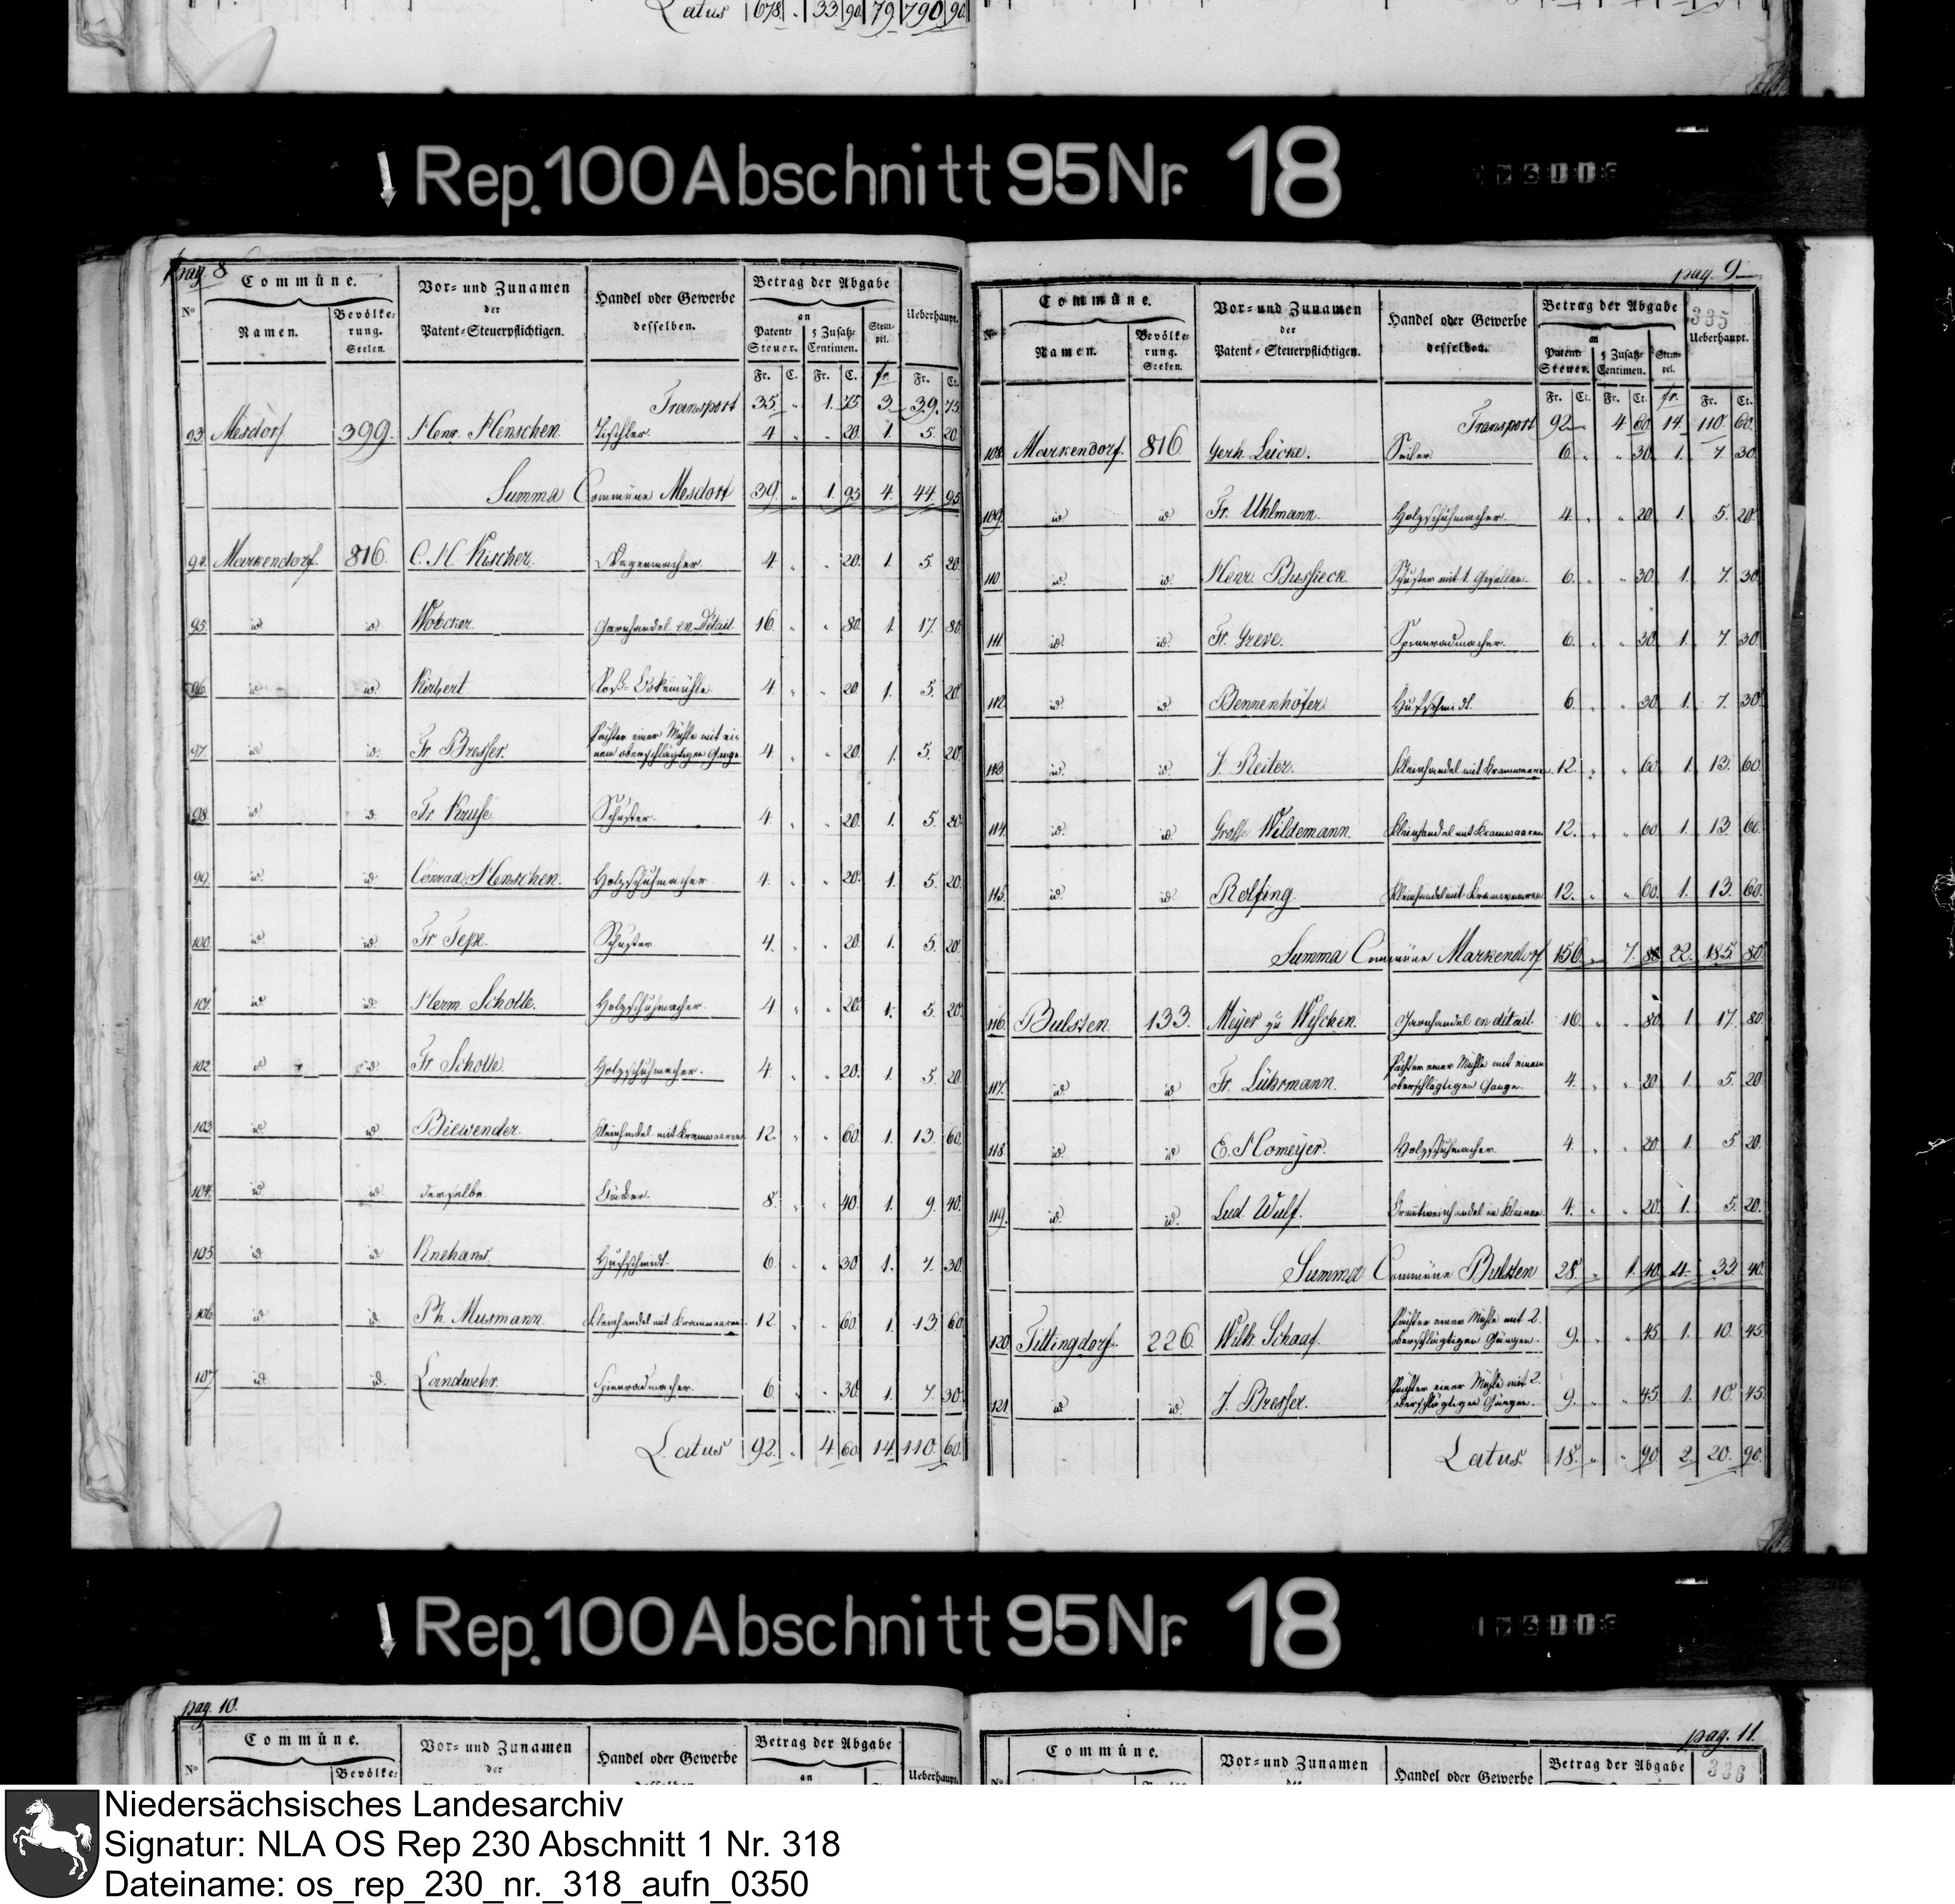 Latus 678. " 33. 90. 79. 790. 90.
Rep. 100 Abschnitt 95 Nr. 18
pag. 8
Commüne.
Vor- und Zunamen
der
Patent-Steuerpflichtigen.
Handel oder Gewerbe
desselben.
Betrag der Abgabe
an
Ueberhaupt.
No
Namen.
Bevölke-
rung.
Seelen.
Patent-
Steuer.
5 Zusatz-
Centimen.
Stem-
pel.
Fr. C. Fr. C. fr. Fr. Ct.
Transport 35. " 1. 75 3. 39. 75
93. Mesdorf 399. Henr. Henschen. Tischler. 4 " " 20. 1. 5. 20
Summa Commüne Mesdorf 39. " 1. 95 4. 44. 95
94. Markendorf. 816. C. H. Kischer. Wagenmacher. 4. " " 20. 1. 5. 20.
95. id. id. Wobcker. Garnhandel en Détail. 16. " " 80. 1. 17. 80.
96. id. id. Korbert 4. " " 20. 1. 5. 20.
97. id. id. Fr. Bresser. Pächter einer Mühle mit ei-
nem oberschlägtigen Gange 4. " " 20. 1. 5. 20.
98. id. id. Fr. Kruse. Schuster. 4. " " 20. 1. 5. 20.
99. id. id. Conrad Henschen. Holzschuhmacher 4. " " 20. 1. 5. 20.
100. id. id. Fr. Sepe. Schuster 4. " " 20. 1. 5. 20.
101. id. id. Herm. Scholle. Holzschuhmacher. 4. " " 20. 1. 5. 20.
102. id. id. Fr. Scholle. Holzschuhmacher. 4. " " 20. 1. 5. 20.
103. id. id. Biewender. Kleinhandel mit Kramwaaren 12. " " 60. 1. 13. 60.
104. id. id. derselbe Bäcker. 8. " " 40. 1. 9. 40.
105. id. id. Knehans. Hufschmidt. 6. " " 30. 1. 7. 30.
106. id. id. Ph. Musmann. Kleinhandel mit Kramwaaren. 12. " " 60. 1. 13. 60.
107 id. id. Landwehr. Spinradmacher. 6. " " 30. 1. 7. 30.
Latus 92. " 4. 60. 14. 110. 60.
pag. 9.
335
Commüne.
Vor- und Zunamen
der
Patent-Steuerpflichtigen.
Handel oder Gewerbe
desselben.
Betrag der Abgabe
an
Ueberhaupt.
No
Namen.
Bevölke-
rung.
Seelen.
Patent-
Steuer.
5 Zusatz-
Centimen.
Stem-
pel.
Fr. Ct. Fr. Ct. fr. Fr. Ct.
Transport 92 " 4. 60. 14. 110. 60.
108. Markendorf. 816. Gerh. Lücke. Seiler 6. " " 30. 1. 7. 30.
109. id. id. Fr. Uhlmann. Holzschuhmacher. 4. " " 20. 1. 5. 20.
110. id. id. Henr. Bussieck. Schuster mit 1. Gesellen. 6. " " 30. 1. 7. 30.
111. id. id. Fr. Greve. Spinnradmacher. 6. " " 30. 1. 7. 30.
112. id. id. Bennenhöfer. Hufschmidt. 6. " " 30. 1. 7. 30.
113. id. id. J. Reiter. Kleinhandel mit Kramwaaren. 12. " " 60. 1. 13. 60.
114. id. id. Grosse Wildemann. Kleinhandel mit Kramwaaren 12. " " 60. 1. 13. 60.
115. id. id. Rolfing. Kleinhandel mit Kramwaaren 12. " " 60. 1. 13. 60.
Summa Commüne Markendorf 156. " 7. 80. 22. 185. 80.
116. Bulsten. 133. Meyer zu Garnhandel en détail. 16. " " 80. 1. 17. 80.
117. id. id. Fr. Lührmann. Pächter einer Mühle mit einem
oberschlägtigen Gange. 4. " " 20. 1. 5. 20.
118. id. id. E. Homeyer. Holzschuhmacher. 4. " " 20. 1. 5. 20.
119. id. id. Lud. Wulf. Branntweinhandel im Kleinen. 4. " " 20. 1. 5. 20.
Summa Commüne Bulsten 28. " 1. 40. 4. 33. 40.
120. Tittingdorf. 226. Wilh. Schaaf. Pächter einer Mühle mit 2.
oberschlägtigen Gängen. 9. " " 45. 1. 10. 45.
121. id. id. J. Bresser. Pächter einer Mühle mit 2.
oberschlägtigen Gängen. 9. " " 45. 1. 10. 45.
Latus 18. " " 90. 2. 20. 90.
Rep. 100 Abschnitt 95 Nr. 18
pag. 10.
Commüne.
Vor- und Zunamen
der
Handel oder Gewerbe
Betrag der Abgabe
an
Ueberhaupt.
No
Bevölke-
pag. 11.
336
Commüne.
Vor- und Zunamen
Handel oder Gewerbe
Betrag der Abgabe
Niedersächsisches Landesarchiv
Signatur: NLA OS Rep 230 Abschnitt 1 Nr. 318
Dateiname: os_rep_230_nr._318_aufn_0350